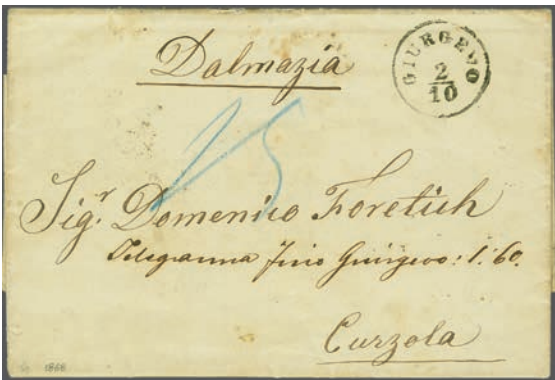 Dalmazia
GIURGEVO
2/10
15
Sigr Domenico Foretich
Telegramma fino Giurgevo: 1.60.
Curzola
1866